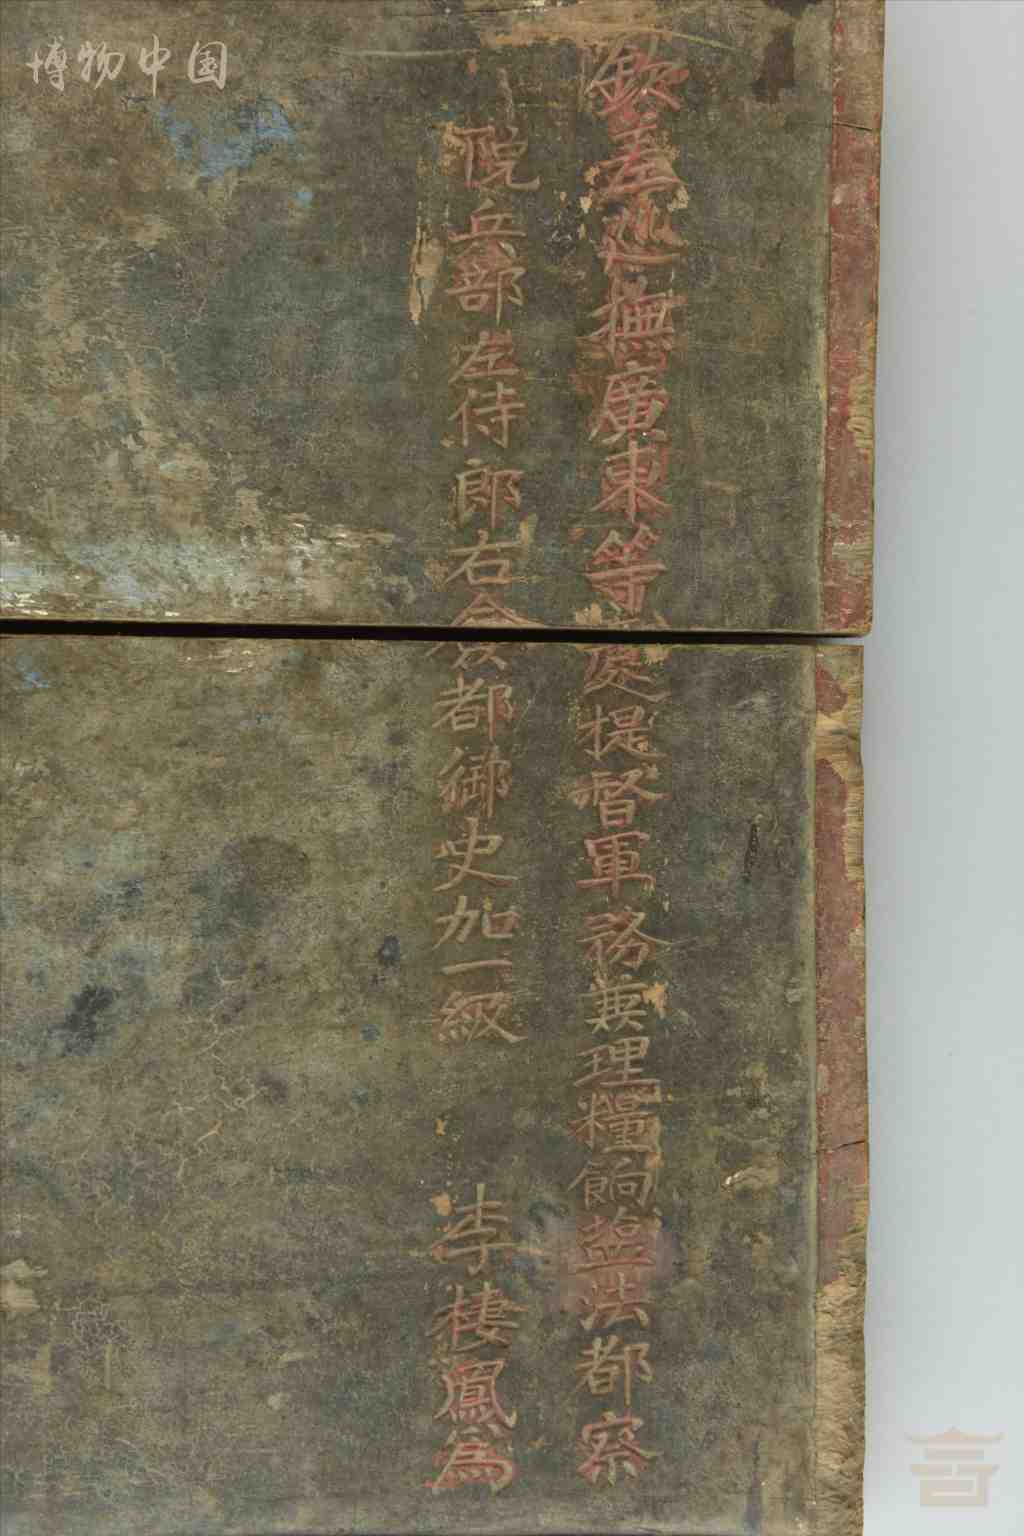 博物中国
欽差巡撫廣東等處提督軍務兼理糧餉塩法都察
院兵部左侍郎右僉都御史加一級 李棲鳳為